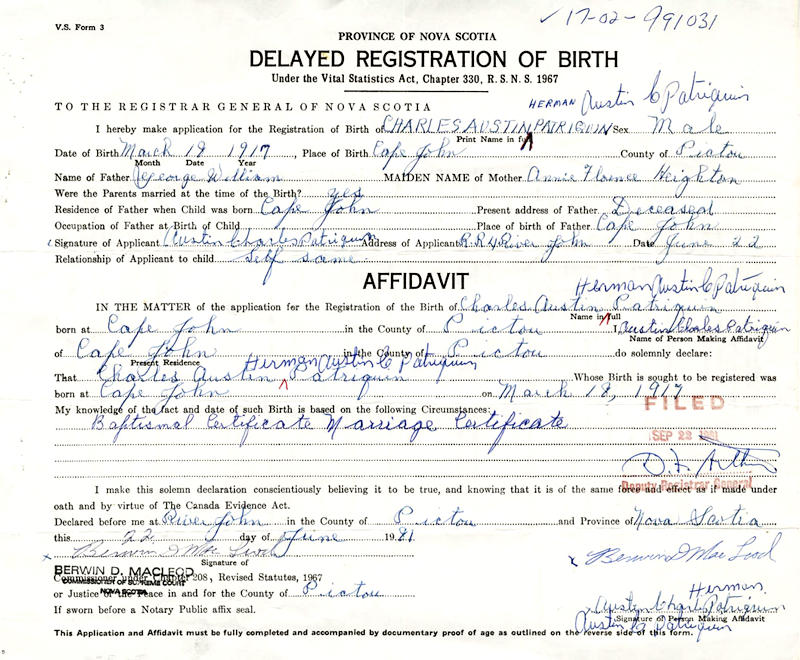 ✓ 17-02-991031
V.S. Form 3
PROVINCE OF NOVA SCOTIA
DELAYED REGISTRATION OF BIRTH
Under the Vital Statistics Act, Chapter 330, R.S.N.S. 1967
TO THE REGISTRAR GENERAL OF NOVA SCOTIA
HERMAN Austin C Patriquin
I hereby make application for the Registration of Birth of CHARLES AUSTIN PATRIQUIN Sex Male
Print Name in full
Date of Birth March 19 1917, Place of Birth Cape John County of Pictou
Month Date Year
Name of Father George William MAIDEN NAME of Mother Annie Florence Heighton
Were the Parents married at the time of the Birth? yes
Residence of Father when Child was born Cape John Present address of Father Deceased
Occupation of Father at Birth of Child Place of birth of Father Cape John
Signature of Applicant Austin Charles Patriquin Address of Applicant R.R.4 River John Date June 22
Relationship of Applicant to child Self same
AFFIDAVIT
Herman Austin C Patriquin
IN THE MATTER of the application for the Registration of the Birth of Charles Austin Patriquin
Name in full
born at Cape John in the County of Pictou I, Austin Charles Patriquin
Name of Person Making Affidavit
of Cape John in the County of Pictou do solemnly declare:
Present Residence
Herman Austin C Patriquin
That Charles Austin Patriquin Whose Birth is sought to be registered was
born at Cape John on March 18, 1917
My knowledge of the fact and date of such Birth is based on the following Circumstances:
Baptismal Certificate Marriage Certificate
FILED
SEP 22
Deputy Registrar General
I make this solemn declaration conscientiously believing it to be true, and knowing that it is of the same force and effect as if made under
oath and by virtue of The Canada Evidence Act.
Declared before me at River John in the County of Pictou and Province of Nova Scotia
this 22 day of June 1981
x Berwin D Mac Leod
Signature of
x Berwin D Mac Leod
BERWIN D. MACLEOD
COMMISSIONER OF SUPREME COURT
NOVA SCOTIA
Commissioner under Chapter 208, Revised Statutes, 1967
or Justice of the Peace in and for the County of Pictou
If sworn before a Notary Public affix seal.
Herman
Austin Charles Patriquin
Signature of Person Making Affidavit
Austin C Patriquin
This Application and Affidavit must be fully completed and accompanied by documentary proof of age as outlined on the reverse side of this form.